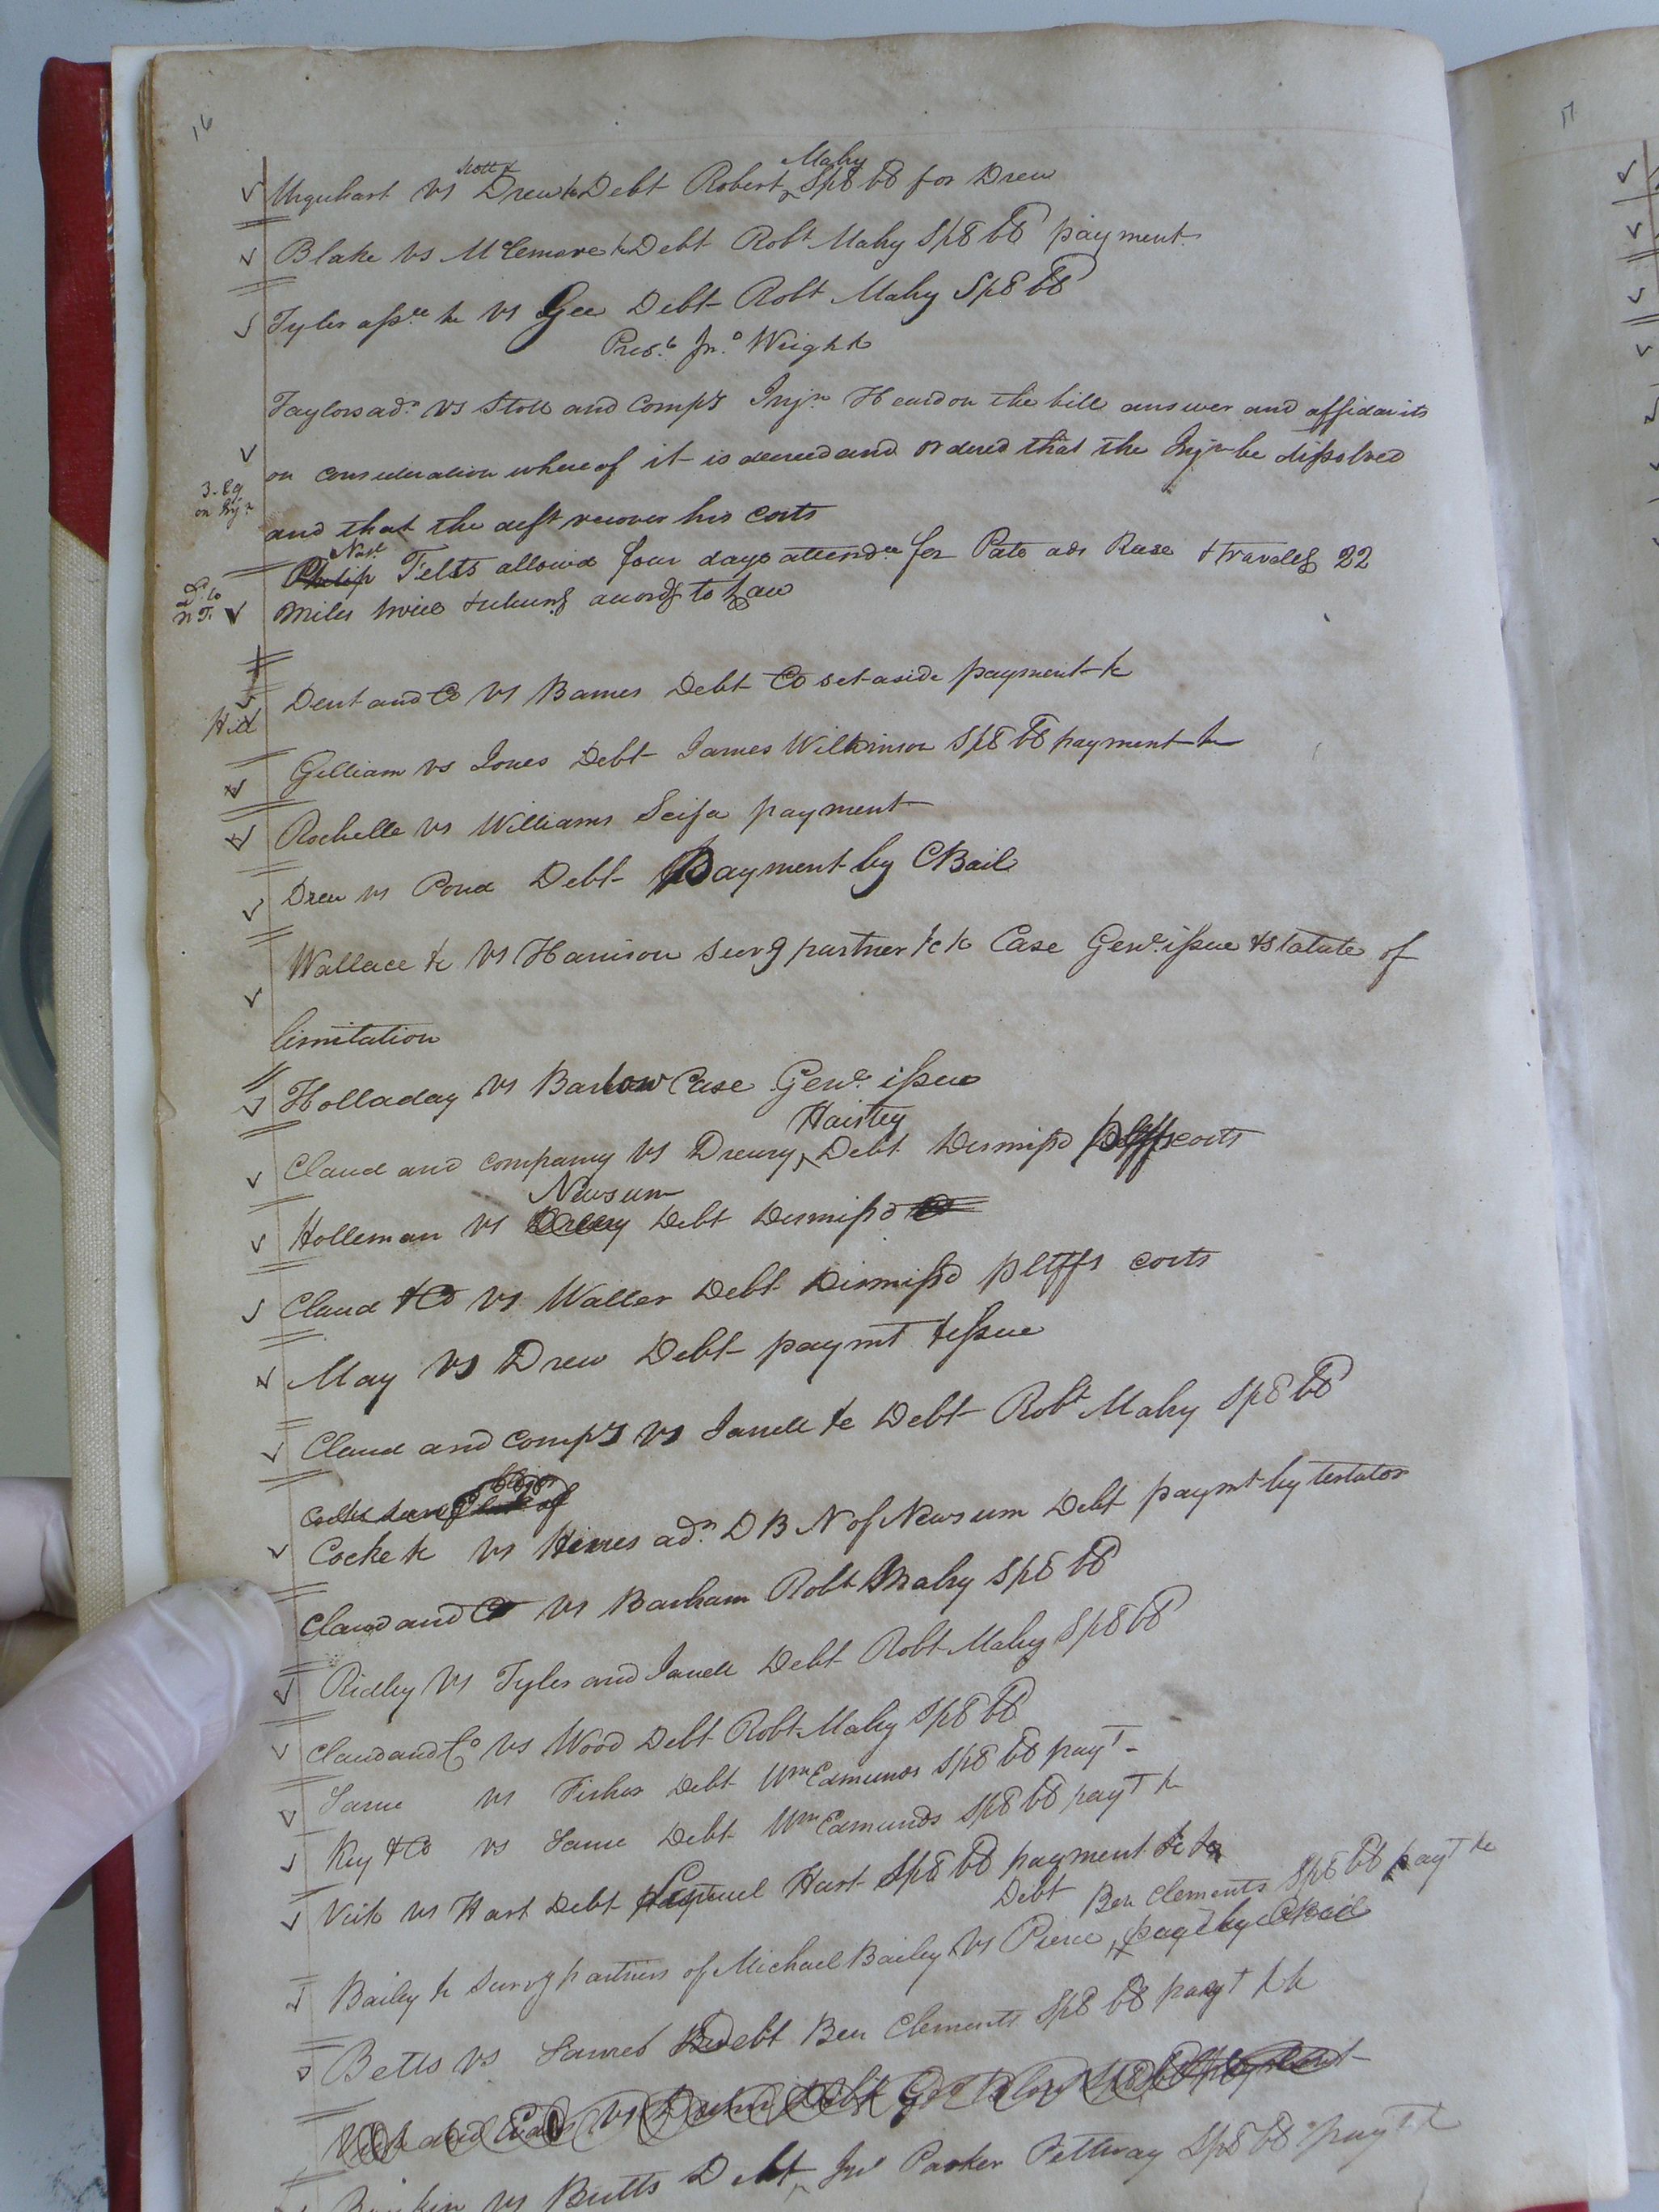 16
17
Urquhart vs Scott & Drew &c Debt Robert Mabry Sp8 b8 for Drew
Blake vs McLemore &c Debt Robt Mabry Sp8 b8 payment
Tyler assee &c vs Gee Debt Robt Mabry Sp8 b8
Presd Jno Wright
Taylors adr vs Stott and Compy Injn Heard on the bill answer and affidavits
on consideration whereof it is decreed and ordered that the Injn be dissolved
3.89
on Injn
and that the deft recover his costs
Philip Natl Felts allowed four days attendce for Pate ads Rese & traveling 22
miles twice & returng accordg to Law
Dent and Co vs Barnes Debt CO set aside payment &c
Gilliam vs Jones Debt James Wilkinson Sp8 b8 payment &c
Rochelle vs Williams Scifa payment
Drew vs Pond Debt Payment by C Bail
Wallace &c vs Harrison survg partner &c &c Case Genl issue & Statute of
limitation
Holladay vs Barlow Case Genl issue
Claud and company vs Drewry Haistey Debt Dismissd pltffs costs
Holleman vs Drewry Newsum Debt Dismissd
Claud & Co vs Waller Debt Dismissd pltffs costs
May vs Drew Debt paymt & issue
Claud and Compy vs Janell &c Debt Robt Mabry Sp8 b8
Cocke &c vs Hines adr D B N of Newsum Debt paymt by testator
Claud and Co vs Barham Robt Mabry Sp8 b8
Ridley vs Tyler and Janell Debt Robt Mabry Sp8 b8
Claud and Co vs Wood Debt Robt Mabry Sp8 b8
Same vs Fisher Debt Wm Edmunds Sp8 b8 payt
Key & Co vs Same Debt Wm Edmunds Sp8 b8 payt &c
Vick vs Hart Debt Hart Sp8 b8 payment &c &c
Debt Ben Clements Sp8 b8 payt &c
Bailey &c survg partners of Michael Bailey vs Pierce payt by C Bail
Betts vs Same Debt Ben Clements Sp8 b8 payt &c
vs Butts Debt Parker Pettway Sp8 b8 payt &c